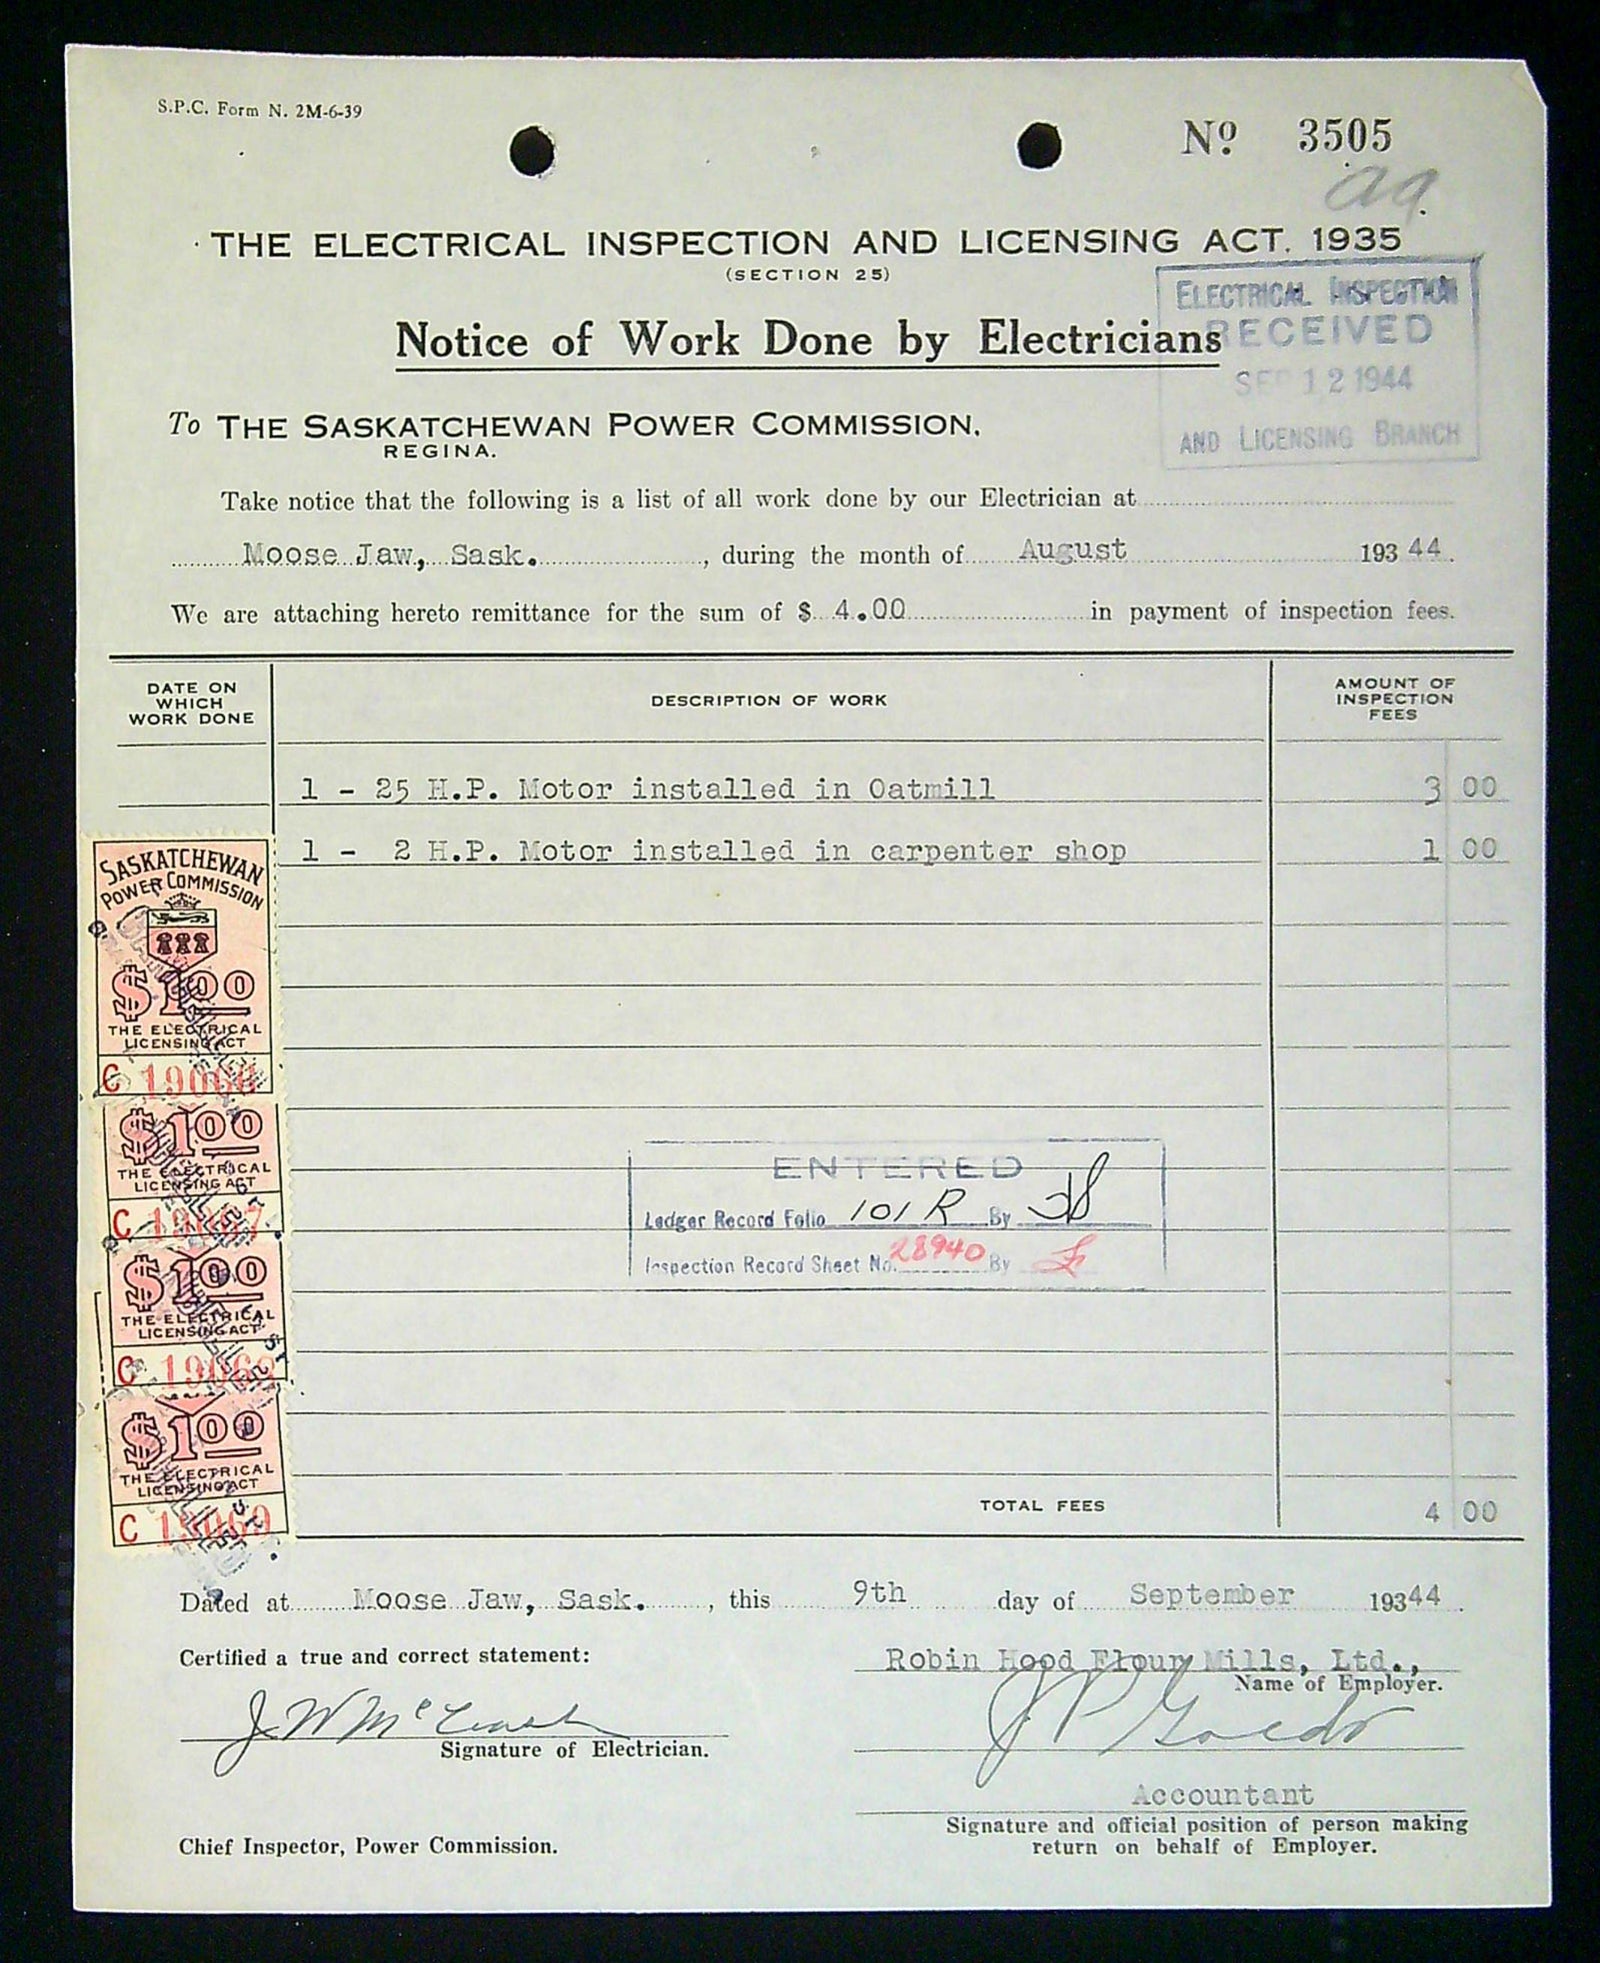 S.P.C. Form N. 2M-6-39
Nº 3505
THE ELECTRICAL INSPECTION AND LICENSING ACT. 1935
(SECTION 25)
ELECTRICAL INSPECTION
RECEIVED
SEP 12 1944
AND LICENSING BRANCH
Notice of Work Done by Electricians
To THE SASKATCHEWAN POWER COMMISSION,
REGINA.
Take notice that the following is a list of all work done by our Electrician at
Moose Jaw, Sask., during the month of August 19344.
We are attaching hereto remittance for the sum of $ 4.00 in payment of inspection fees.
DATE ON
WHICH
WORK DONE
DESCRIPTION OF WORK
AMOUNT OF
INSPECTION
FEES
1 - 25 H.P. Motor installed in Oatmill 3 00
1 - 2 H.P. Motor installed in carpenter shop 1 00
SASKATCHEWAN
POWER COMMISSION
$1.00
THE ELECTRICAL
LICENSING ACT
C 19066
$1.00
THE ELECTRICAL
LICENSING ACT
C 19067
$1.00
THE ELECTRICAL
LICENSING ACT
C 19068
$1.00
THE ELECTRICAL
LICENSING ACT
C 19069
ENTERED
Ledger Record Folio 101 R By
Inspection Record Sheet No. 28940 By
TOTAL FEES 4 00
Dated at Moose Jaw, Sask., this 9th day of September 19344.
Certified a true and correct statement:
Robin Hood Flour Mills, Ltd.,
Name of Employer.
Signature of Electrician.
Accountant
Signature and official position of person making
return on behalf of Employer.
Chief Inspector, Power Commission.